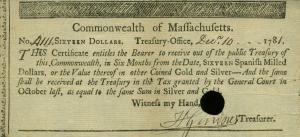 Commonwealth of Massachusetts.
No. SIXTEEN DOLLARS. Treasury-Office, Dec. 10 1781.
THIS Certificate entitles the Bearer to receive out of the public Treasury of
this Commonwealth, in Six Months from the Date, SIXTEEN Spanish Milled
Dollars, or the Value thereof in other Coined Gold and Silver—And the same
shall be received at the Treasury in the Tax granted by the General Court in
October last, as equal to the same Sum in Silver and Gold.
Witness my Hand,
Treasurer.